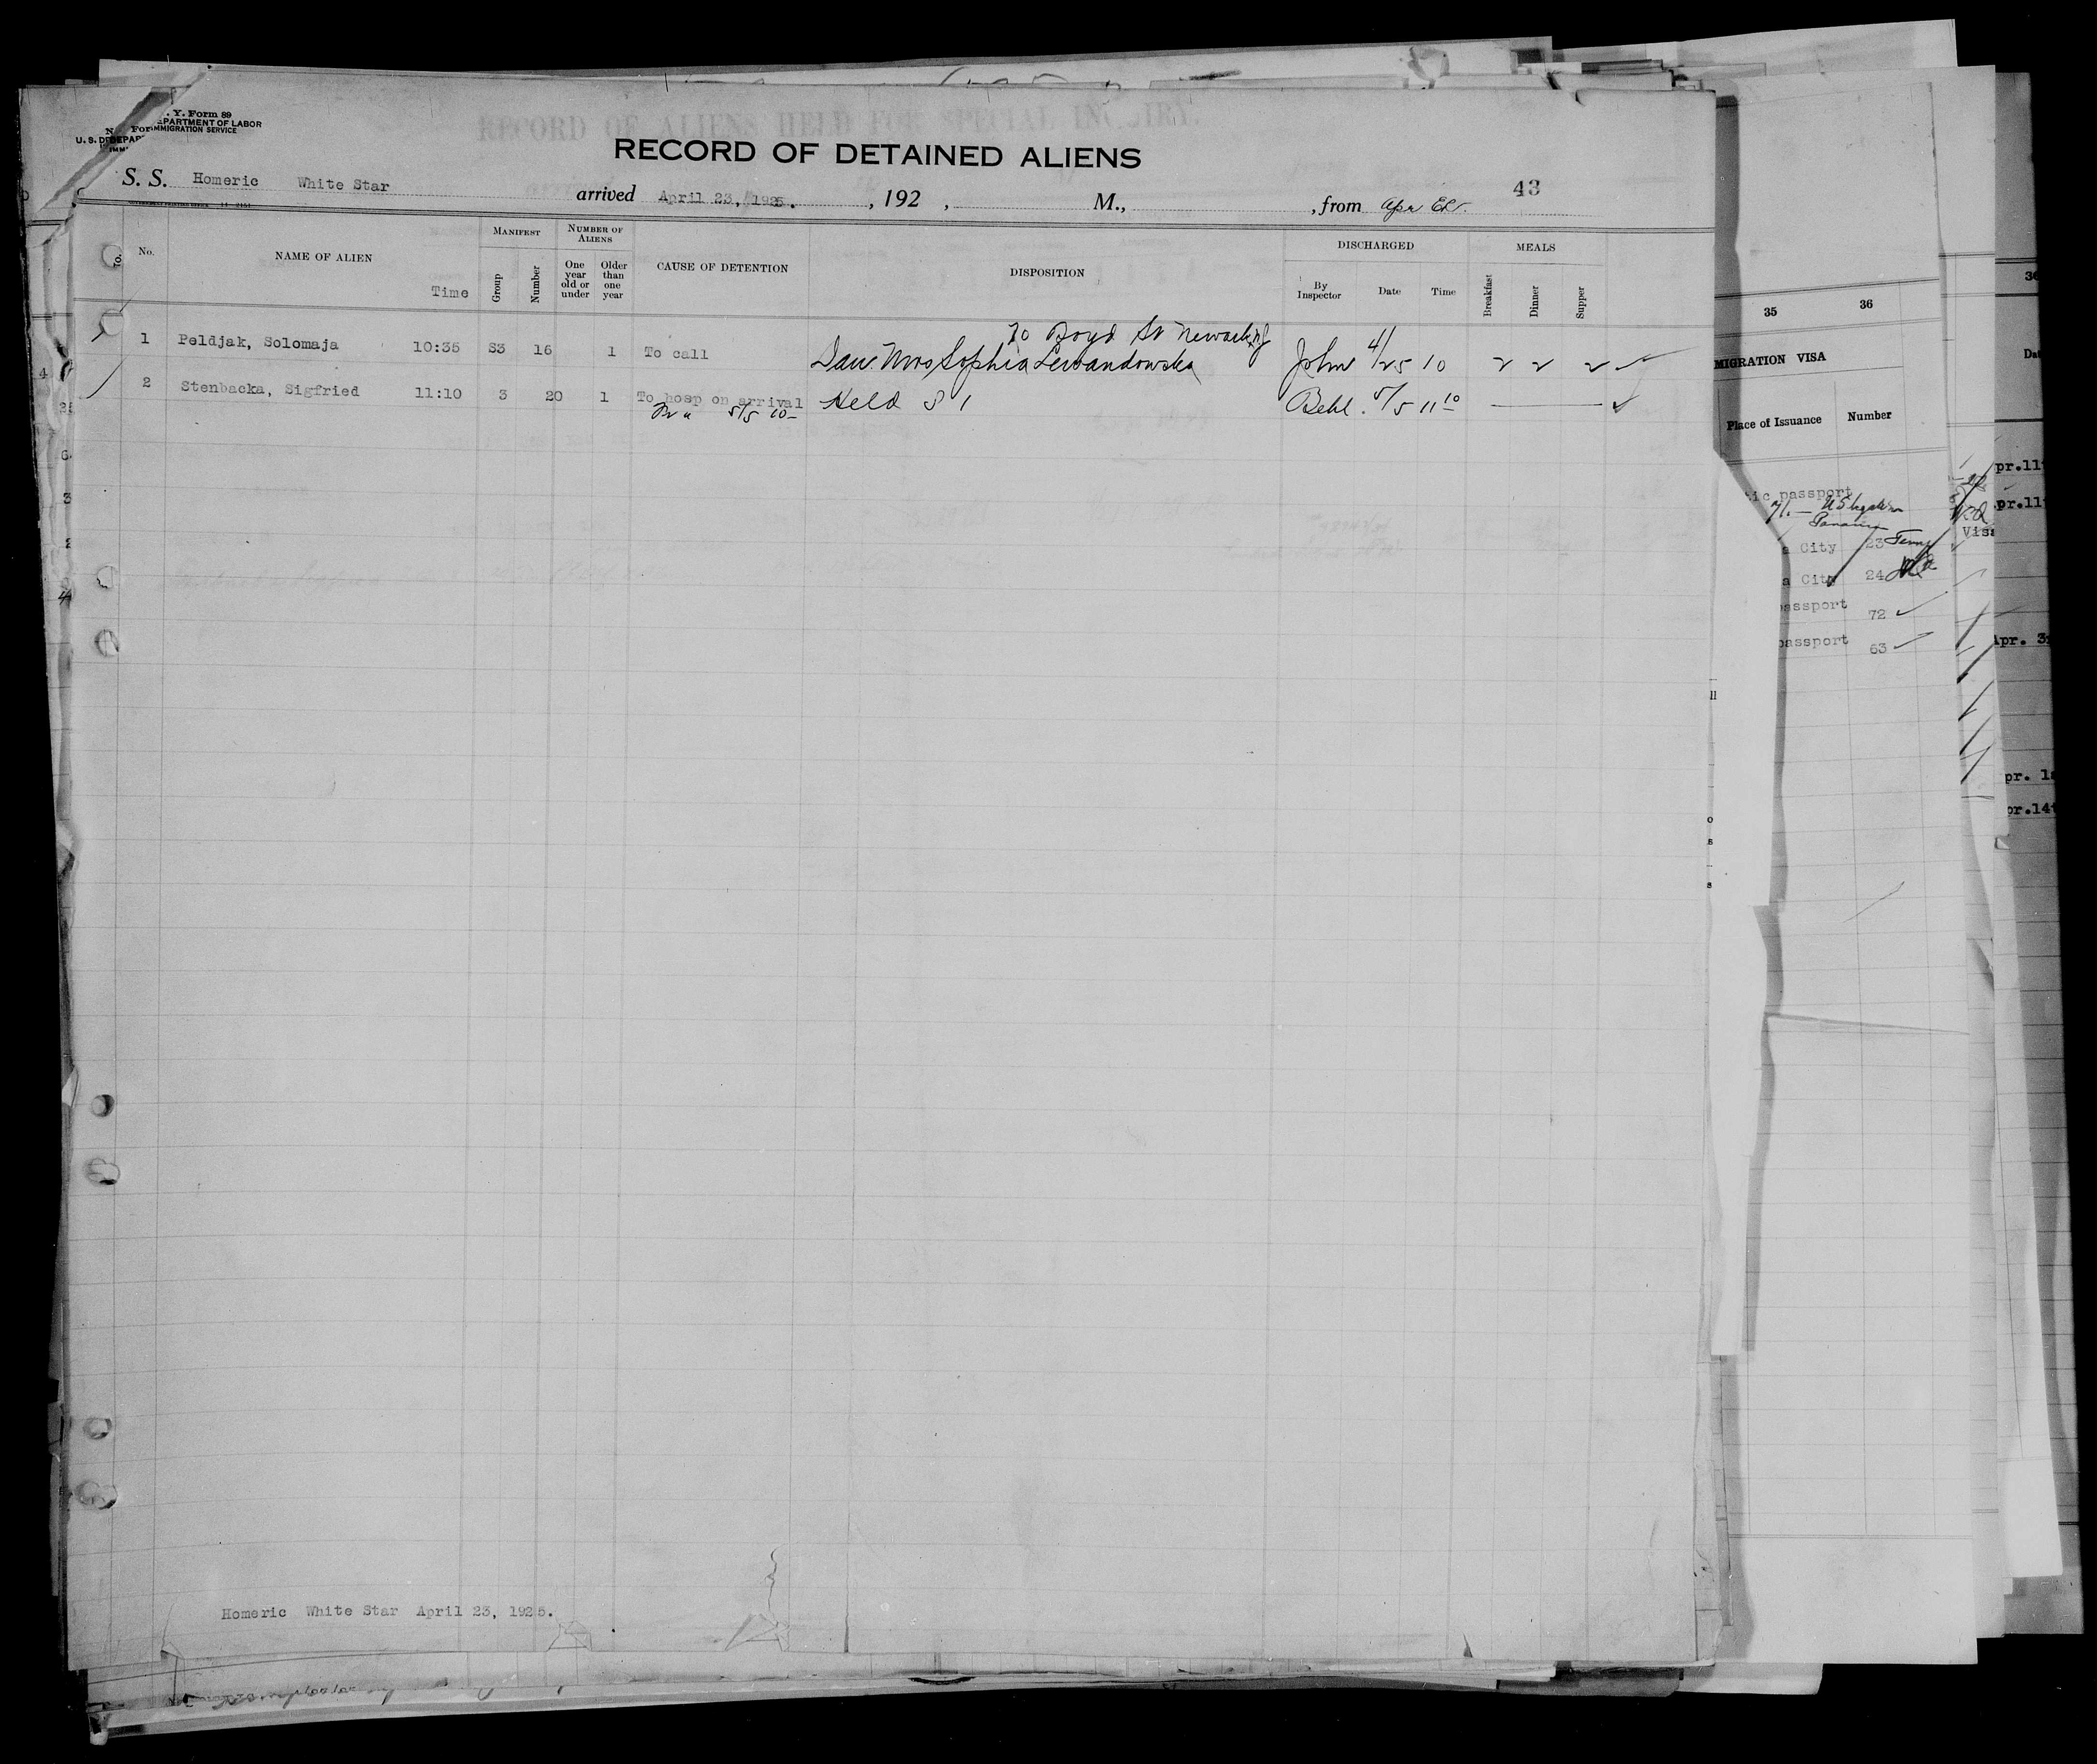 N. Y. Form 89
U. S. DEPARTMENT OF LABOR
IMMIGRATION SERVICE
RECORD OF ALIENS HELD FOR SPECIAL INQUIRY.
RECORD OF DETAINED ALIENS
S. S. Homeric White Star arrived April 23, 1925. , 192 , M., , from
43
No. NAME OF ALIEN Time MANIFEST Group Number NUMBER OF ALIENS One year old or under Older than one year CAUSE OF DETENTION DISPOSITION DISCHARGED By Inspector Date Time MEALS Breakfast Dinner Supper
70 Boyd St Newark NJ
1 Peldjak, Solomaja 10:35 S3 16 1 To call Mrs Sophia Lewandowska John 4/25 10 2 2 2
2 Stenbacka, Sigfried 11:10 3 20 1 To hosp on arrival Held S I 5/5 11 10
5/5 10
Homeric White Star April 23, 1925.
35 36
MIGRATION VISA
Place of Issuance Number
ic passport
a City 23
a City 24
passport 72
passport 63
pr.11
pr.11
Apr. 3
pr. 1
pr.14